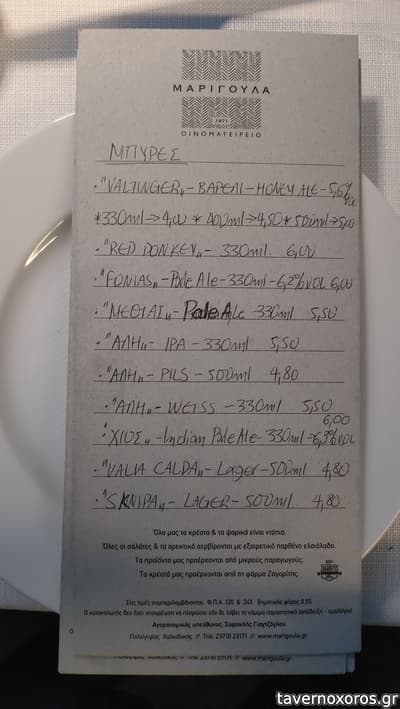 ΜΑΡΙΓΟΥΛΑ
1971
ΟΙΝΟΜΑΓΕΙΡΕΙΟ
ΜΠΥΡΕΣ
• "VALTINGER" - ΒΑΡΕΛΙ - HONEY ALE - 5,6% VOL
*330ml → 4,00 * 400ml → 4,50 * 500ml → 5,00
• "RED DONKEY" - 330ml. 6,00
• "FONIAS" - Pale Ale - 330ml - 6,2% VOL 6,00
• "ΜΕΘΥΑΙ" - Pale Ale - 330ml 5,50
• "ΑΛΗ" - IPA - 330ml 5,50
• "ΑΛΗ" - PILS - 500ml 4,80
• "ΑΛΗ" - WEISS - 330ml 5,50
• "ΧΙΟΣ" - Indian Pale Ale - 330ml - 6,3% VOL 6,00
• "VALIA CALDA" - Lager - 500ml 4,80
• "SKNIPA" - LAGER - 500ml 4,80
Όλα μας τα κρέατα & τα ψαρικά είναι ντόπια.
Όλες οι σαλάτες & τα ορεκτικά σερβίρονται με εξαιρετικό παρθένο ελαιόλαδο.
Τα προϊόντα μας προέρχονται από μικρούς παραγωγούς.
Τα κρέατά μας προέρχονται από τη φάρμα Ζαγορίτης.
Στις τιμές συμπεριλαμβάνονται: Φ.Π.Α. 13% & 24% δημοτικός φόρος 0,5%
Ο καταναλωτής δεν έχει υποχρέωση να πληρώσει εάν δε λάβει το νόμιμο παραστατικό (απόδειξη - τιμολόγιο)
Αγορανομικός υπεύθυνος: Σοφοκλής Γιαγτζόγλου
Πολύγυρος, Χαλκιδικής // Τηλ. 23710 23171 // www.marigoula.gr
tavernoxoros.gr